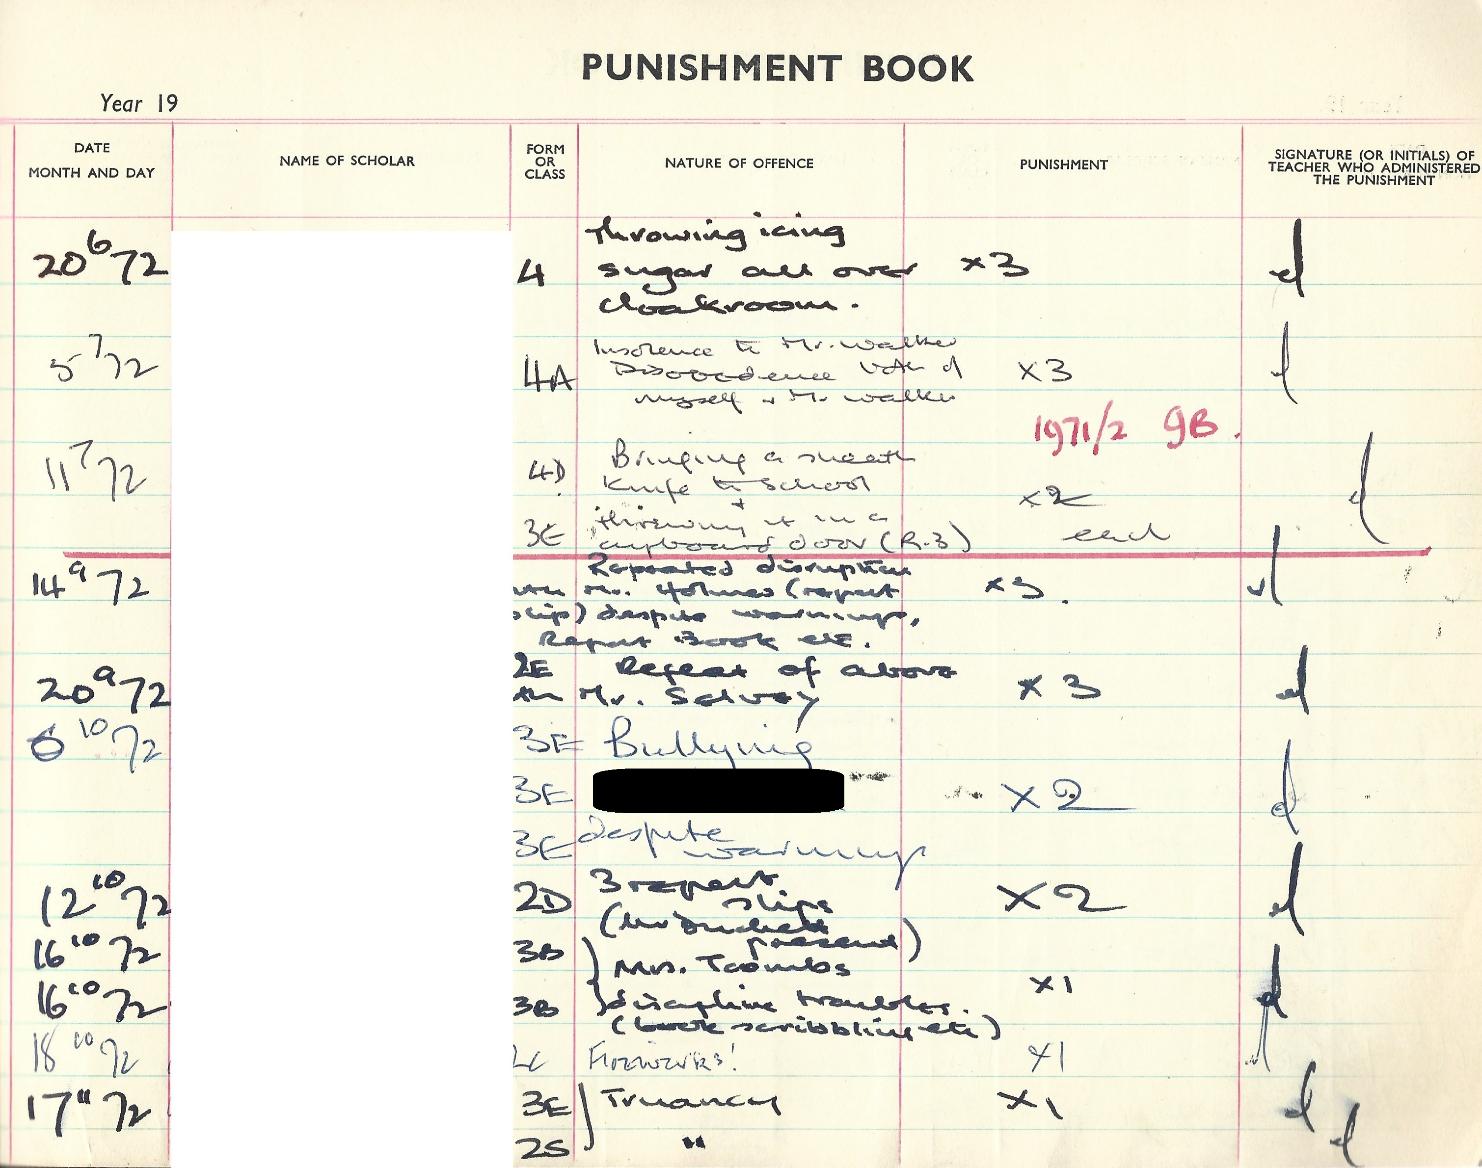 PUNISHMENT BOOK
Year 19
DATE
MONTH AND DAY
NAME OF SCHOLAR
FORM
OR
CLASS
NATURE OF OFFENCE
PUNISHMENT
SIGNATURE (OR INITIALS) OF
TEACHER WHO ADMINISTERED
THE PUNISHMENT
Throwing icing
20 6 72 4 sugar all over x3
cloakroom.
Insolence to Mr. Walker
5 7 72 4A Disobedience both of x3
myself + Mr. Walker
1971/2 9B.
11 7 72 4D Bringing a sheath
Knife to School x2
+
3E throwing it in a each
cupboard door (R.3)
Repeated disruption
14 9 72 with Mr. Holmes (report x3.
slip) despite warnings,
Report Book etc.
2E Repeat of above
20 9 72 with Mr. Selvey x3
6 10 72 3E Bullying
3E x2
3E despite
warnings
12 10 72 2D 3 report x2
slips
present)
16 10 72 3B Mrs. Toombs
x1
16 10 72 3B discipline troubles.
(book scribbling etc)
18 10 72 Fireworks! x1
17 11 72 3E Truancy x1
2S "